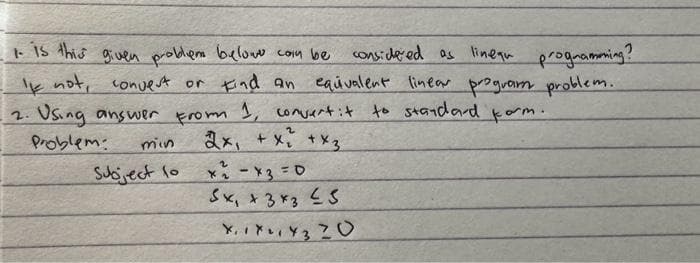 1. is this given problem below can be considered as linear programming?
If not, convert or find an equivalent linear program problem.
2. Using answer from 1, convert it to standard form.
Problem: min 2x₁ + x₂² + x₃
Subject to x₂² - x₃ = 0
5x₁ + 3x₃ ≤ 5
x₁, x₂, x₃ ≥ 0